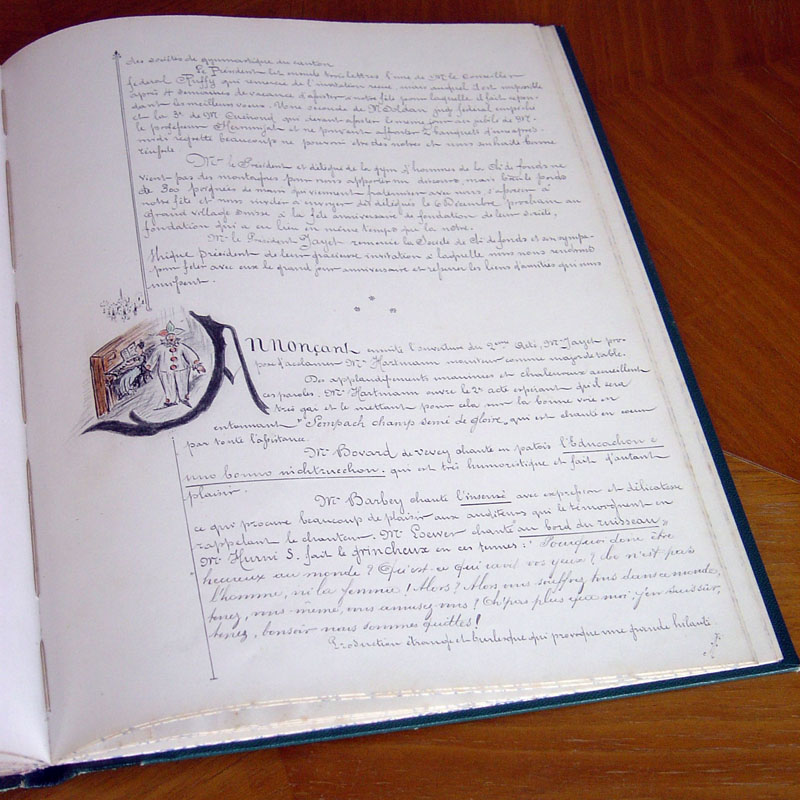 des sociétés de gymnastique du canton
Le Président lit ensuite trois lettres l'une de Mr le Conseiller
fédéral Ruffy qui remercie de l'invitation reçue, mais auquel il est impossible
après 4 semaines de vacances d'assister à notre fête pour laquelle il fait cepen-
dant les meilleurs vœux. Une seconde de Mr Soldan juge fédéral empêché
et la 3e de Mr Guénoud qui devant assister le même jour au jubilé de Mr
le professeur Herminjat et ne pouvant affronter 2 banquets d'une après-
midi regrette beaucoup ne pouvoir être des nôtres et nous souhaite bonne
réussite.
Mr le Président et délégué de la gym d'hommes de la Ch. de fonds ne
vient pas des montagnes pour nous apporter un discours, mais bien le poids
de 300 poignées de main qui viennent fraterniser avec nous, s'associer à
notre fête et nous inviter à envoyer des délégués le 6 Décembre prochain au
grand village suisse à la fête anniversaire de fondation de leur société,
fondation qui a eu lieu en même temps que la nôtre.
Mr le Président Jayet remercie la Société de Ch. de fonds et son sympa-
thique président de leur gracieuse invitation à laquelle nous nous rendrons
pour fêter avec eux le grand jour anniversaire et resserrer les liens d'amitiés qui nous
unissent.
Annonçant ensuite l'ouverture du 2ème Acte, Mr Jayet pro-
pose d'acclamer Mr Hartmann moniteur comme major de table.
Des applaudissements unanimes et chaleureux accueillent
ces paroles. Mr Hartmann ouvre le 2e acte espérant qu'il sera
très gai et le mettant pour cela sur la bonne voie en
entonnant "Sempach champ semé de gloire" qui est chanté en chœur
par toute l'assistance.
Mr Bovard de Vevey chante en patois l'Educachon e
una bouna inchtrucchon, qui est très humoristique et fait d'autant
plaisir.
Mr Barbey chante l'insensé avec expression et délicatesse
ce qui procure beaucoup de plaisir aux auditeurs qui le témoignent en
rappelant le chanteur. Mr Loewer chante "au bord du ruisseau"
Mr Hurni S. fait le grincheux en ces termes: "Pourquoi donc être
heureux au monde? Qu'est-ce qui rend vos yeux? Ce n'est pas
l'homme, ni la femme! Alors? Alors vous souffrez tous dans ce monde,
tenez, vous-même, vous amusez-vous? Oh! pas plus que moi, j'en suis sûr,
tenez, bonsoir nous sommes quittes!
Production étrange et burlesque qui provoque une grande hilarité.